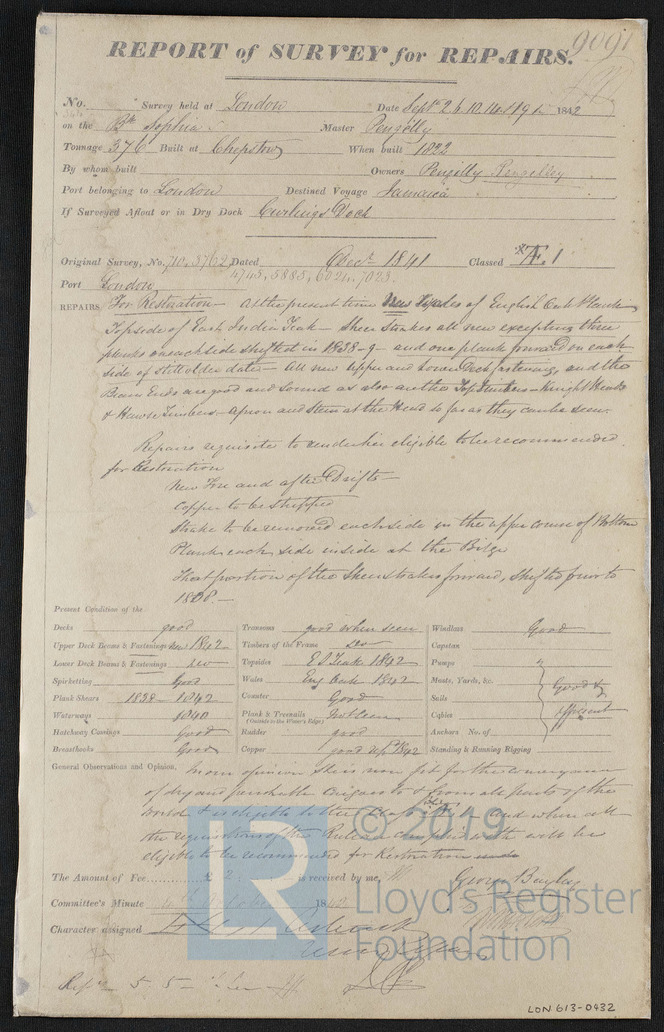 9091
REPORT of SURVEY for REPAIRS.
No. Survey held at London Date Sept 2. 6. 10. 14. 19 1842
on the Bk Sophia Master Pengilly
Tonnage 376 Built at Chepstow When built 1822
By whom built Owners Pengilly Pengelley
Port belonging to London Destined Voyage Jamaica
If Surveyed Afloat or in Dry Dock Curlings Dock
Original Survey, No. 710. 3762 Dated Decr 1841 Classed Æ. 1
4743. 5885. 6024. 7023.
Port London
REPAIRS For Restoration - At the present time New of English Oak Plank
Topside of East India Teak - Sheer strakes all new excepting three
planks on each side shifted in 1838-9 - and one plank forward on each
side of still older date - All new upper and Lower Deck fastening, and the
Beam Ends are good and sound as also are the Top Timbers - Knight Heads
& Hawse Timbers - apron and Stem at the Head so far as they can be seen.
Repairs requisite to render her eligible to be recommended
for Restoration
New Fore and after Drifts -
Copper to be stripped
Strake to be removed each side in the upper course of Bottom
Plank each side inside at the Bilge
That portion of the Sheerstrakes forward, shifted prior to
1838 -
Present Condition of the
Decks good Transoms good when seen Windlass Good
Upper Deck Beams & Fastenings new 1842 Timbers of the Frame Do Capstan
Lower Deck Beams & Fastenings Do Topsides E I Teak 1842 Pumps "
Spirketting Good Wales Eng Oak 1842 Masts, Yards, &c. Good &
Plank Shears 1838 - 1842 Counter Good Sails efficient
Waterways 1840 Plank & Treenails Not seen Cables
(Outside to the Water's Edge)
Hatchway Coamings Good Rudder good Anchors No. of
Breasthooks Good Copper good Sept 1842 Standing & Running Rigging
General Observations and Opinion. In my opinion She is now fit for the conveyance
of dry and perishable Cargoes to & from all parts of the
world & is eligible to the Class Æ 1 and when all
the requisitions of the Rule are complied with will be
eligible to be recommended for Restoration
The Amount of Fee £ 2 is received by me, George Bayley
Committee's Minute 4th October 1842
Character assigned
© 2019
LR
Lloyd's Register
Foundation
LON 613-0432